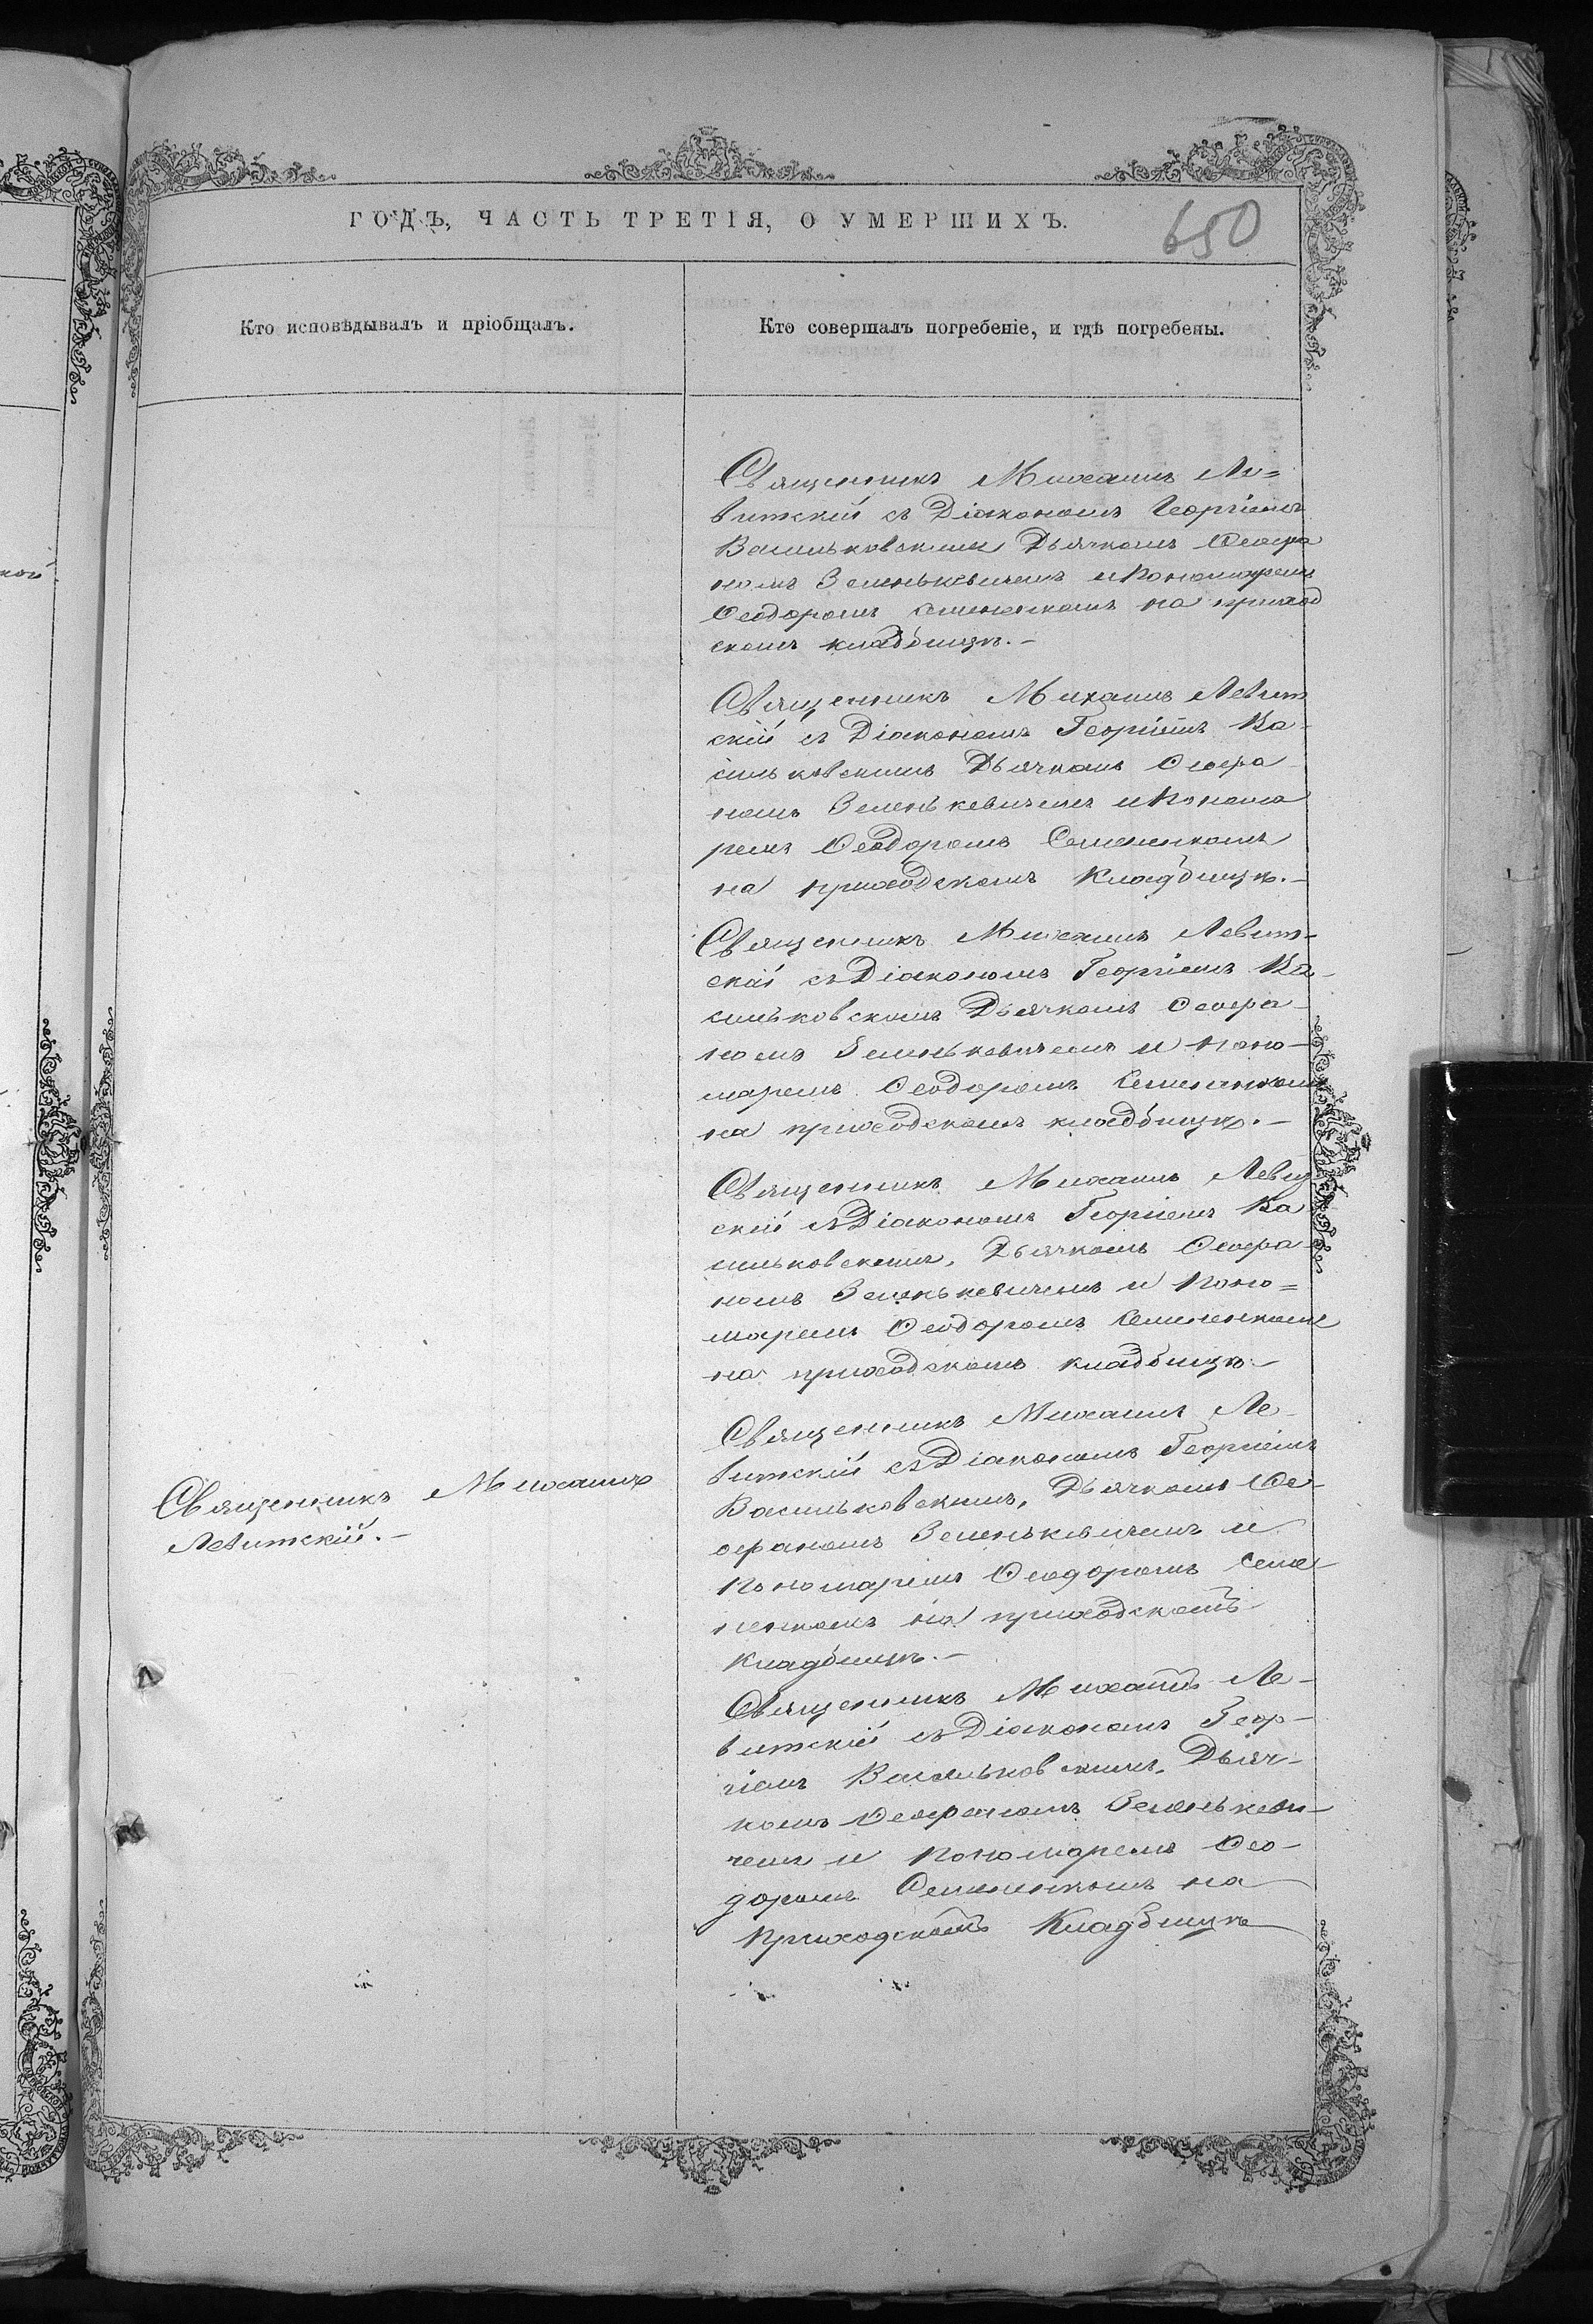 ГОДЪ, ЧАСТЬ ТРЕТІЯ, О УМЕРШИХЪ.
650
Кто исповѣдывалъ и пріобщалъ.
Кто совершалъ погребеніе, и гдѣ погребены.
Священникъ Михаилъ Ле=
витскій съ Діакономъ Георгіемъ
Васильковскимъ Дьячкомъ Ѳеофа
номъ Зеленькевичемъ и Пономаремъ
Ѳеодоромъ Семененкомъ на приход
скомъ кладбищѣ.-
Священникъ Михаилъ Левит
скій съ Діакономъ Георгіемъ Ва-
сильковскимъ Дьячкомъ Ѳеофа
номъ Зеленькевичемъ и Понома
ремъ Ѳеодоромъ Семененкомъ
на приходскомъ Кладбищѣ.-
Священникъ Михаилъ Левит-
скій съ Діакономъ Георгіемъ Ва-
сильковскимъ Дьячкомъ Ѳеофа-
номъ Зеленькевичемъ и Поно-
маремъ Ѳеодоромъ Семененкомъ
на приходскомъ кладбищѣ.-
Священникъ Михаилъ Левит
скій съ Діакономъ Георгіемъ Ва
сильковскимъ, Дьячкомъ Ѳеофа-
номъ Зеленькевичемъ и Поно=
маремъ Ѳеодоромъ Семененкомъ
на приходскомъ кладбищѣ-
Священникъ Михаилъ
Левитскій.-
Священникъ Михаилъ Ле-
витскій съ Діакономъ Георгіемъ
Васильковскимъ, Дьячкомъ Ѳе-
офаномъ Зеленькевичемъ и
Пономаремъ Ѳеодоромъ Семе-
ненкомъ на приходскомъ
Кладбищѣ.-
Священникъ Михаилъ Ле-
витскій съ Діакономъ Геор-
гіемъ Васильковскимъ, Дьяч-
комъ Ѳеофаномъ Зеленькеви-
чемъ и Пономаремъ Ѳео-
доромъ Семененкомъ на
приходскомъ Кладбищѣ